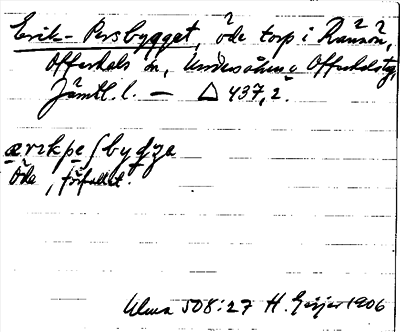 Erik-Persbygget, öde torp i Rännön,
Offerdals sn, Undersåkers o Offerdals tg,
Jämtl. l. — △ 437, 2.
ærikpeſbydza
Öde, förfallet.
Ulma 508:27 H. Geijer 1906